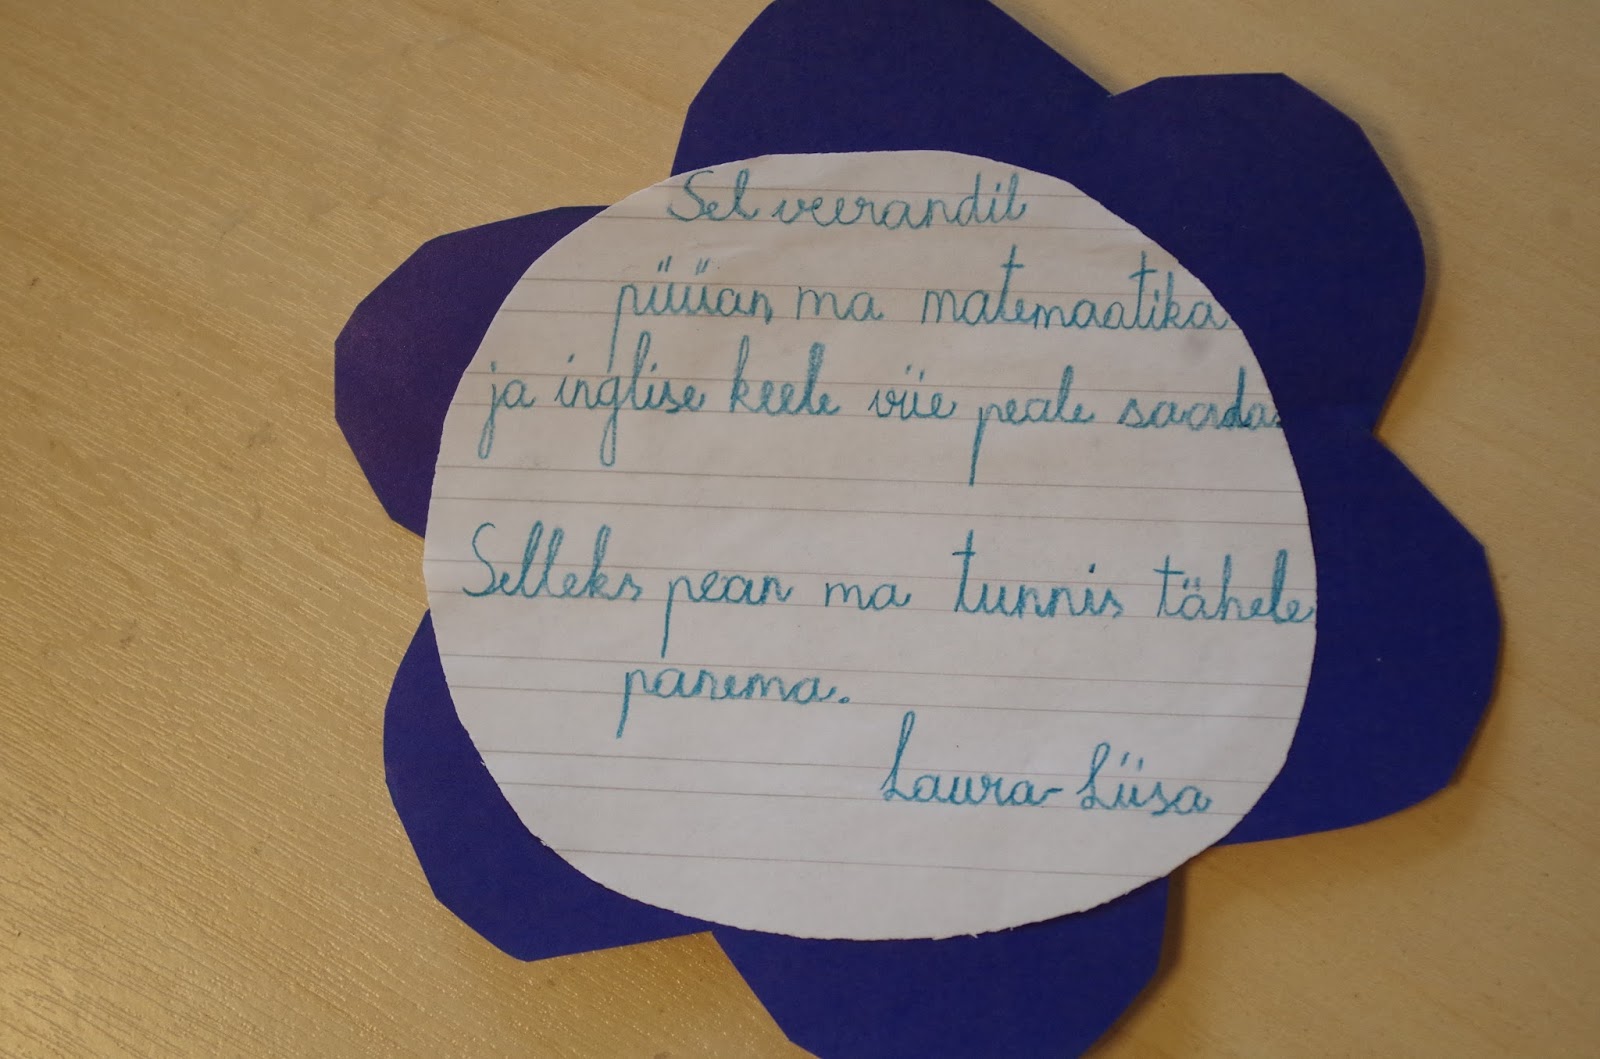 Sel veerandil
püüan ma matemaatika
ja inglise keele viie peale saada.
Selleks pean ma tunnis tähele
panema.
Laura-Liisa